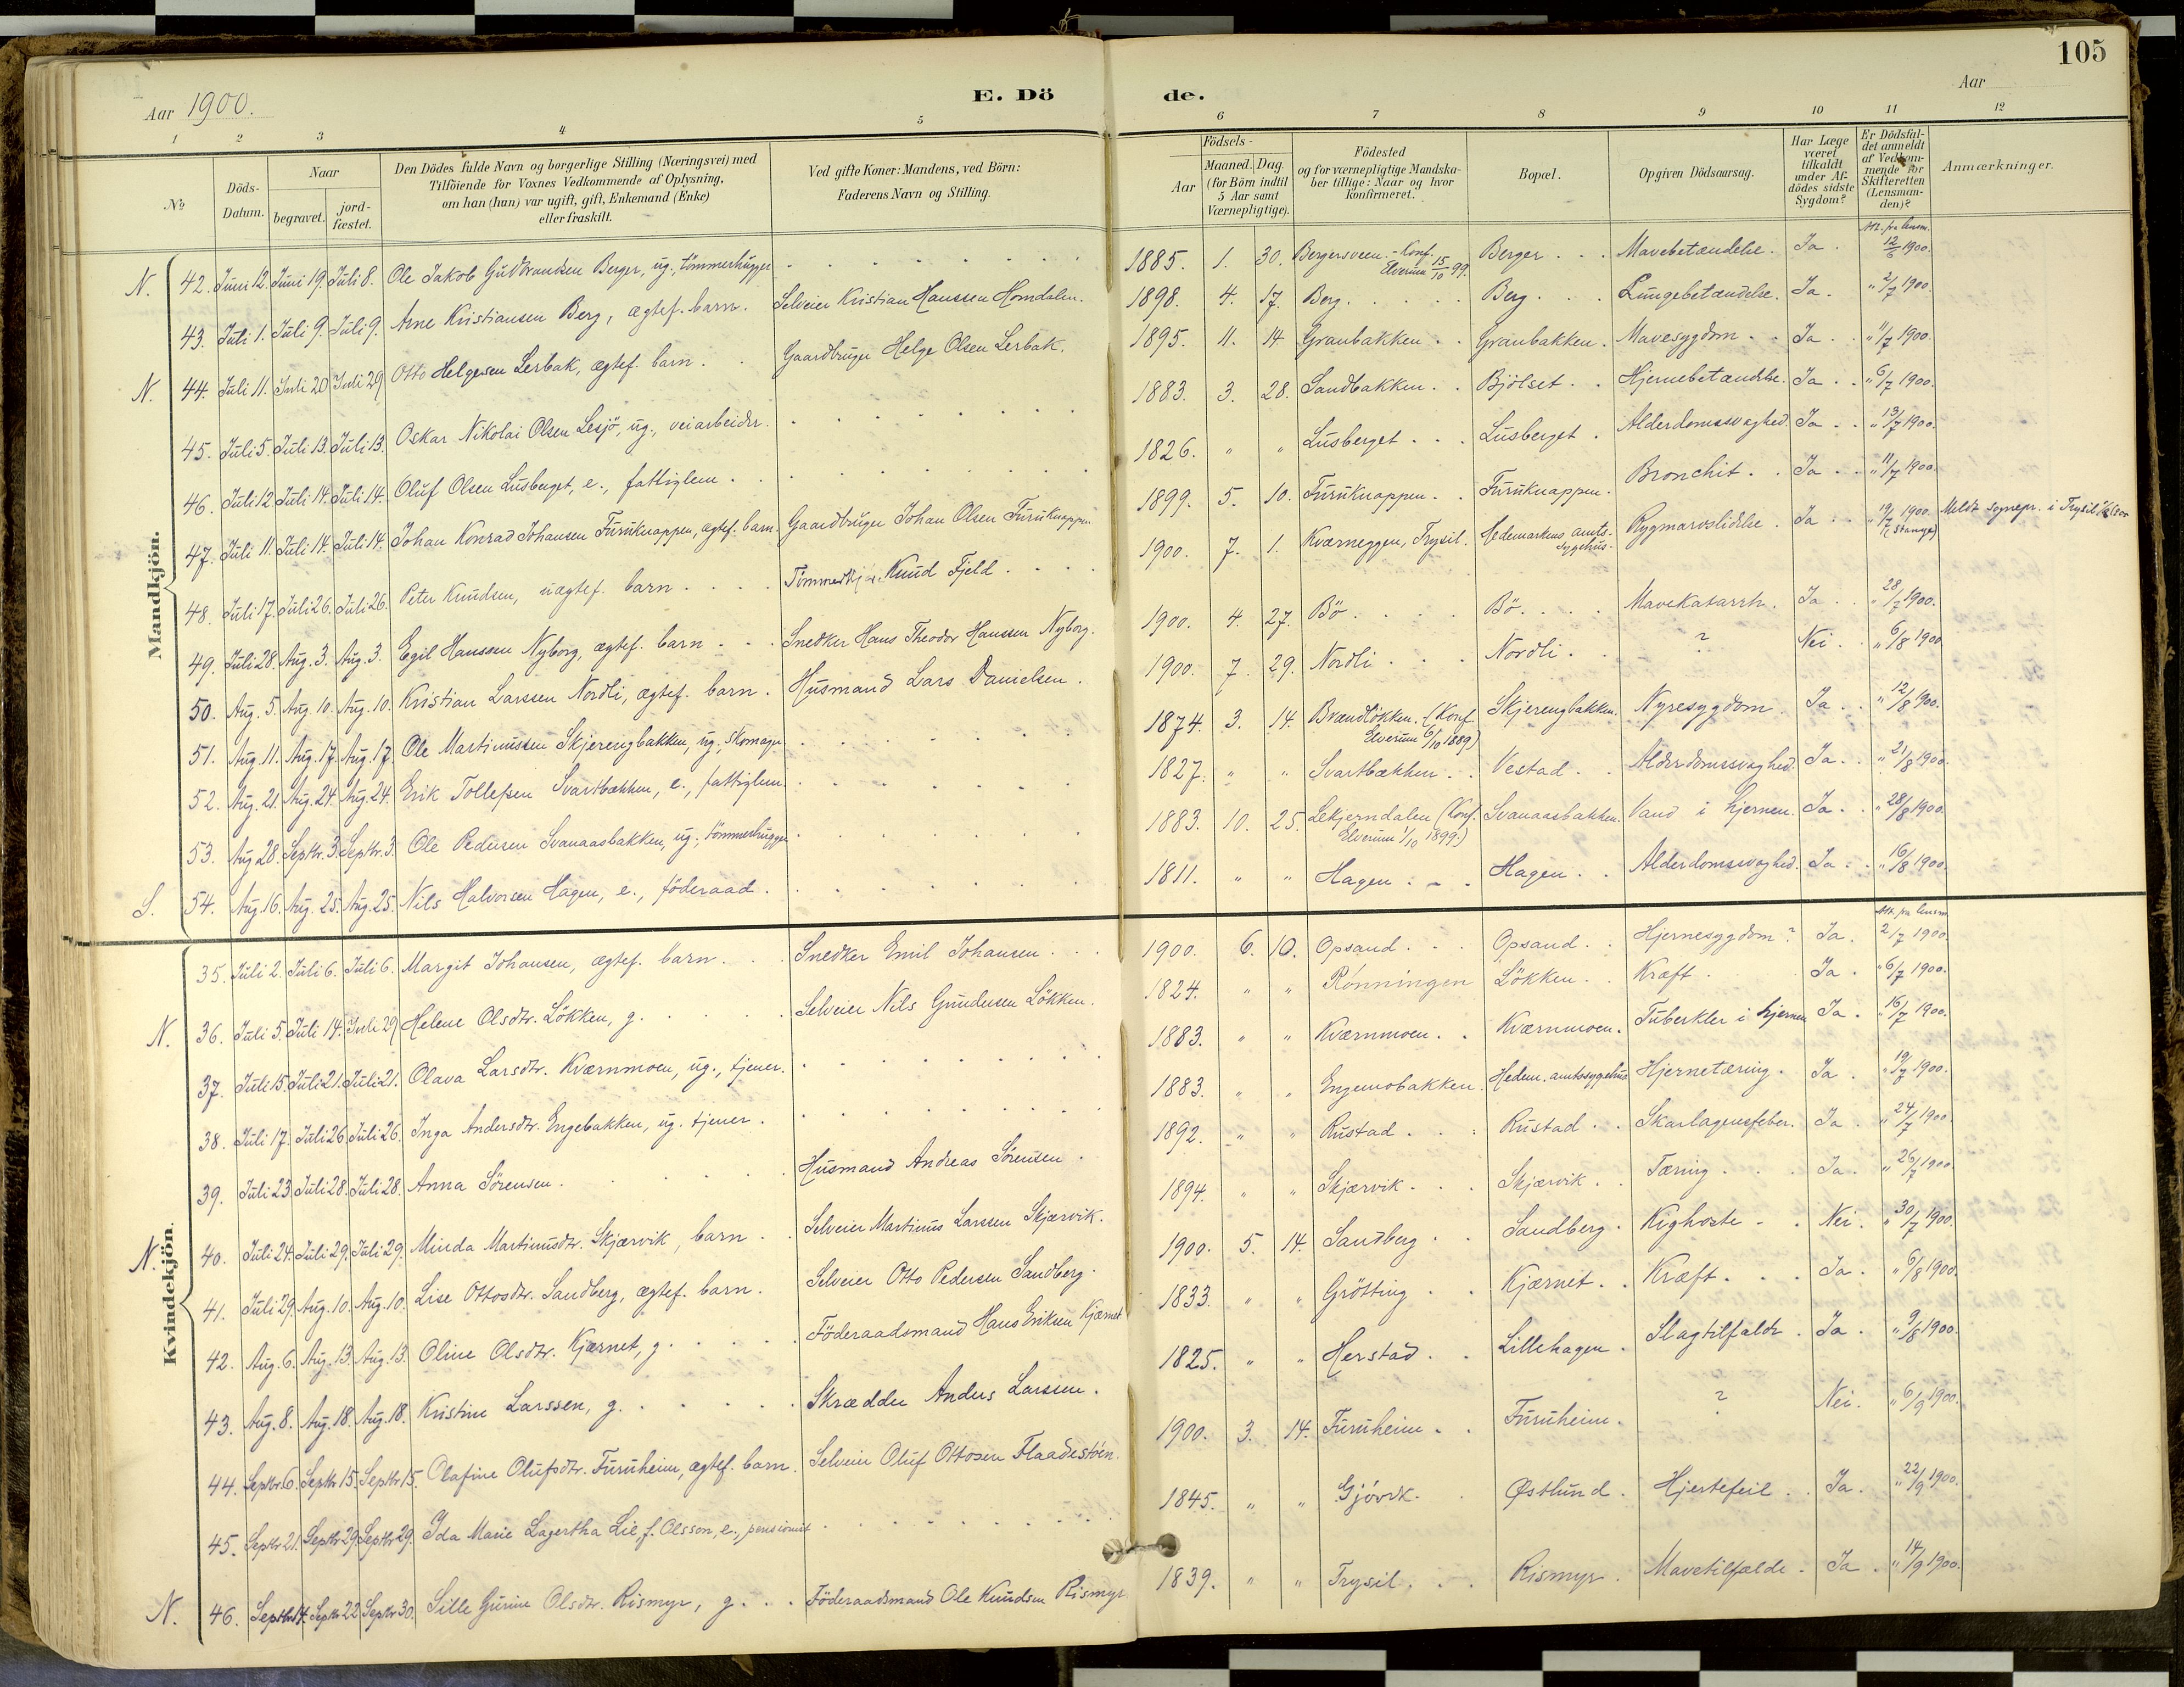 105
Aar 1900.
E. Döde.
Aar
1 2 3 4 5 6 7 8 9 10 11 12
No
Döds-Datum.
Naar
begravet.
jord-fæstet.
Den Dödes fulde Navn og borgerlige Stilling (Næringsvei) med
Tilföiende for Voxnes Vedkommende af Oplysning,
om han (hun) var ugift, gift, Enkemand (Enke)
eller fraskilt.
Ved gifte Koner: Mandens, ved Börn:
Faderens Navn og Stilling.
Födsels-
Aar
Maaned. Dag.
(for Börn indtil
5 Aar samt
Værnepligtige).
Födested
og for værnepligtige Mandska-
ber tillige: Naar og hvor
konfirmeret.
Bopæl.
Opgiven Dödsaarsag.
Har Læge
været
tilkaldt
under Af-
dödes sidste
Sygdom?
Er Dödsfal-
det anmeldt
af Vedkom-
mende for
Skifteretten
(Lensman-
den)?
Anmærkninger.
Mandkjön.
N. 42. Juni 12. Juni 19. Juli 8. Ole Jakob Gudbrandsen Berger, ug., tömmerhugger 1885. 1. 30. Bergersveen. - Konf. Elverum 15/10 99. Berger Mavebetændelse. Ja. Att. fra lensm. 12/6 1900.
43. Juli 1. Juli 9. Juli 9. Arne Kristiansen Berg, ægtef. barn. Selveier Kristian Hanssen Homdalen. 1898. 4. 17. Berg. Berg Lungebetændelse. Ja. " 2/7 1900.
N. 44. Juli 11. Juli 20 Juli 29 Otto Helgesen Lerbak, ægtef. barn. Gaardbruger Helge Olsen Lerbak. 1895. 11. 14 Granbakken Granbakken. Mavesygdom Ja. " 11/7 1900.
45. Juli 5. Juli 13. Juli 13. Oskar Nikolai Olsen Lesjö, ug., veiarbeider. 1883. 3. 28. Sandbakken Bjölset Hjernebetændelse. Ja. " 6/7 1900.
46. Juli 12 Juli 14. Juli 14. Oluf Olsen Lusberget, e., fattiglem. 1826. " " Lusberget Lusberget. Alderdomssvaghed. Ja. " 13/7 1900.
47. Juli 11. Juli 14. Juli 14. Johan Konrad Johansen Furuknappen, ægtef. barn. Gaardbruger Johan Olsen Furuknappen 1899. 5. 10. Furuknappen Furuknappen. Bronchit. Ja. " 11/7 1900.
48. Juli 17. Juli 26. Juli 26. Peter Knudsen, uægtef. barn Knud Fjeld 1900. 7. 1. Kværneggen, Trysil. Hedemarkens amts-sygehus. Rygmarvslidelse. Ja. " 19/7 1900. (Stange) Meldt sognepr. i Trysil
49. Juli 28. Aug. 3. Aug. 3. Egil Hanssen Nyborg, ægtef. barn Snedker Hans Theodor Hanssen Nyborg. 1900. 4. 27. Bö Bö. Mavekatarrh. Ja. " 28/7 1900.
50. Aug. 5. Aug. 10. Aug. 10. Kristian Larssen Nordli, ægtef. barn. Husmand Lars Danielsen. 1900. 7. 29. Nordli Nordli. ? Nei. " 6/8 1900
51. Aug. 11. Aug. 17. Aug. 17. Ole Martinussen Skjerengbakken, ug., skomager 1874. 3. 14. Brændlökken. (Konf. Elverum 6/10 1889) Skjerengbakken. Nyresygdom. Ja. " 12/8 1900.
52. Aug. 21. Aug. 24. Aug. 24. Erik Tollefsen Svartbækken, e., fattiglem. 1827. " " Svartbækken Vestad Alderdomssvaghed. Ja. " 21/8 1900.
53. Aug 28. Septbr. 3. Septbr. 3. Ole Pedersen Svanaasbakken, ug., tömmerhugger 1883. 10. 25. Lekjerndalen (Konf. Elverum 1/10 1899.) Svanaasbakken. Vand i hjernen. Ja. " 28/8 1900.
S. 54. Aug. 16. Aug. 25. Aug. 25. Nils Halvorsen Hagen, e., föderaad. 1811. " " Hagen Hagen. Alderdomssvaghed. Ja. " 16/8 1900.
Kvindekjön.
35. Juli 2. Juli 6. Juli 6. Margit Johansen, ægtef. barn Snedker Emil Johansen 1900. 6. 10. Opsand Opsand Hjernesygdom? Ja. Att. fra lensm. 2/7 1900.
N. 36. Juli 5. Juli 14. Juli 29 Helene Olsdtr. Lökken, g. Selveier Nils Gundersen Lökken. 1824. " " Rönningen Lökken Kræft Ja. " 6/7 1900.
37. Juli 15. Juli 21. Juli 21. Olava Larsdtr. Kværnmoen, ug., tjener. 1883. " " Kværnmoen Kværnmoen. Tuberkler i hjernen Ja. " 16/7 1900.
38. Juli 17. Juli 26 Juli 26. Inga Andersdtr. Engebakken, ug. tjener. 1883. " " Engemobakken. Hedem. amtssygehus Hjernetæring. Ja. " 19/7 1900.
39. Juli 23. Juli 28. Juli 28. Anna Sörensen. Husmand Andreas Sörensen. 1892. " " Rustad Rustad Skarlagensfeber. Ja. " 24/7 1900.
N. 40. Juli 24. Juli 29. Juli 29. Minda Martinusdtr. Skjærvik, barn Selveier Martinus Larssen Skjærvik. 1894. " " Skjærvik Skjærvik Tæring Ja. " 26/7 1900.
41. Juli 29. Aug. 10. Aug. 10. Lise Ottosdtr. Sandberg, ægtef. barn. Selveier Otto Pedersen Sandberg. 1900. 5. 14. Sandberg Sandberg. Kighoste Nei. " 30/7 1900.
42. Aug. 6. Aug. 13. Aug. 13. Oline Olsdtr. Kjærnet, g. Föderaadsmand Hans Eriksen Kjærnet 1833. " " Grötting Kjærnet Kræft Ja. " 6/8 1900.
43. Aug. 8. Aug. 18. Aug. 18. Kristine Larssen, g. Skrædder Anders Larssen. 1825. " " Herstad Lillehagen. Slagtilfælde. Ja. " 9/8 1900.
44. Septbr. 6. Septbr. 15. Septbr. 15. Olafine Olufsdtr. Furuheim, ægtef. barn. Selveier Oluf Ottosen Flaadestöen. 1900. 3. 14. Furuheim Furuheim. ? Nei. " 6/9 1900.
45. Septbr. 21. Septbr. 29. Septbr. 29. Ida Marie Lagertha Lie, f. Olsson, e., pensionist 1845. " " Gjövik Østlund. Hjertefeil Ja. " 22/9 1900.
N. 46. Septbr. 14. Septbr 22 Septbr 30. Sille Gurine Olsdtr. Rismyr, g. Föderaadsmand Ole Knudsen Rismyr 1839. " " Trysil Rismyr. Mavetilfælde Ja. " 14/9 1900.